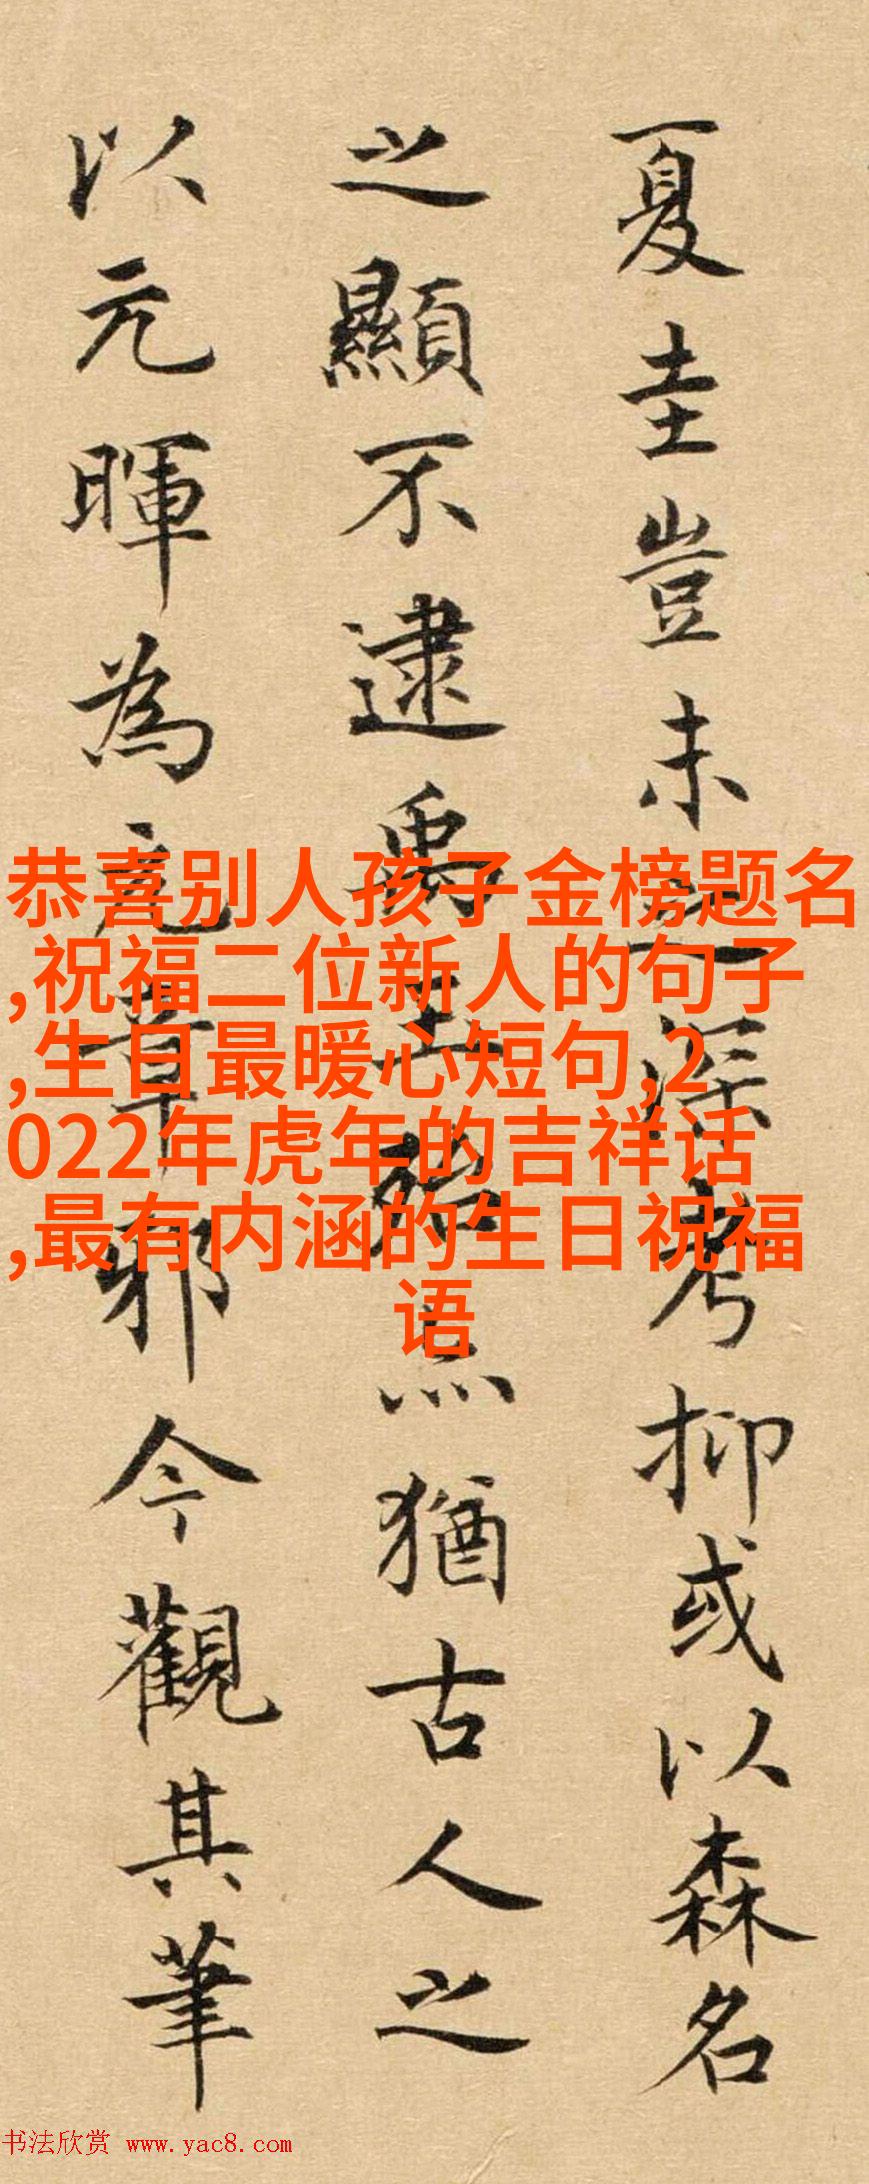 夏圭豈未之深考抑或以森名
之顯不逮禹玉殆亦猶古人之
以元暉為元章邪今觀其筆
恭喜别人孩子金榜题名
,祝福二位新人的句子
,生日最暖心短句,2
022年虎年的吉祥话
,最有内涵的生日祝福
语
书法欣赏 www.yac8.com